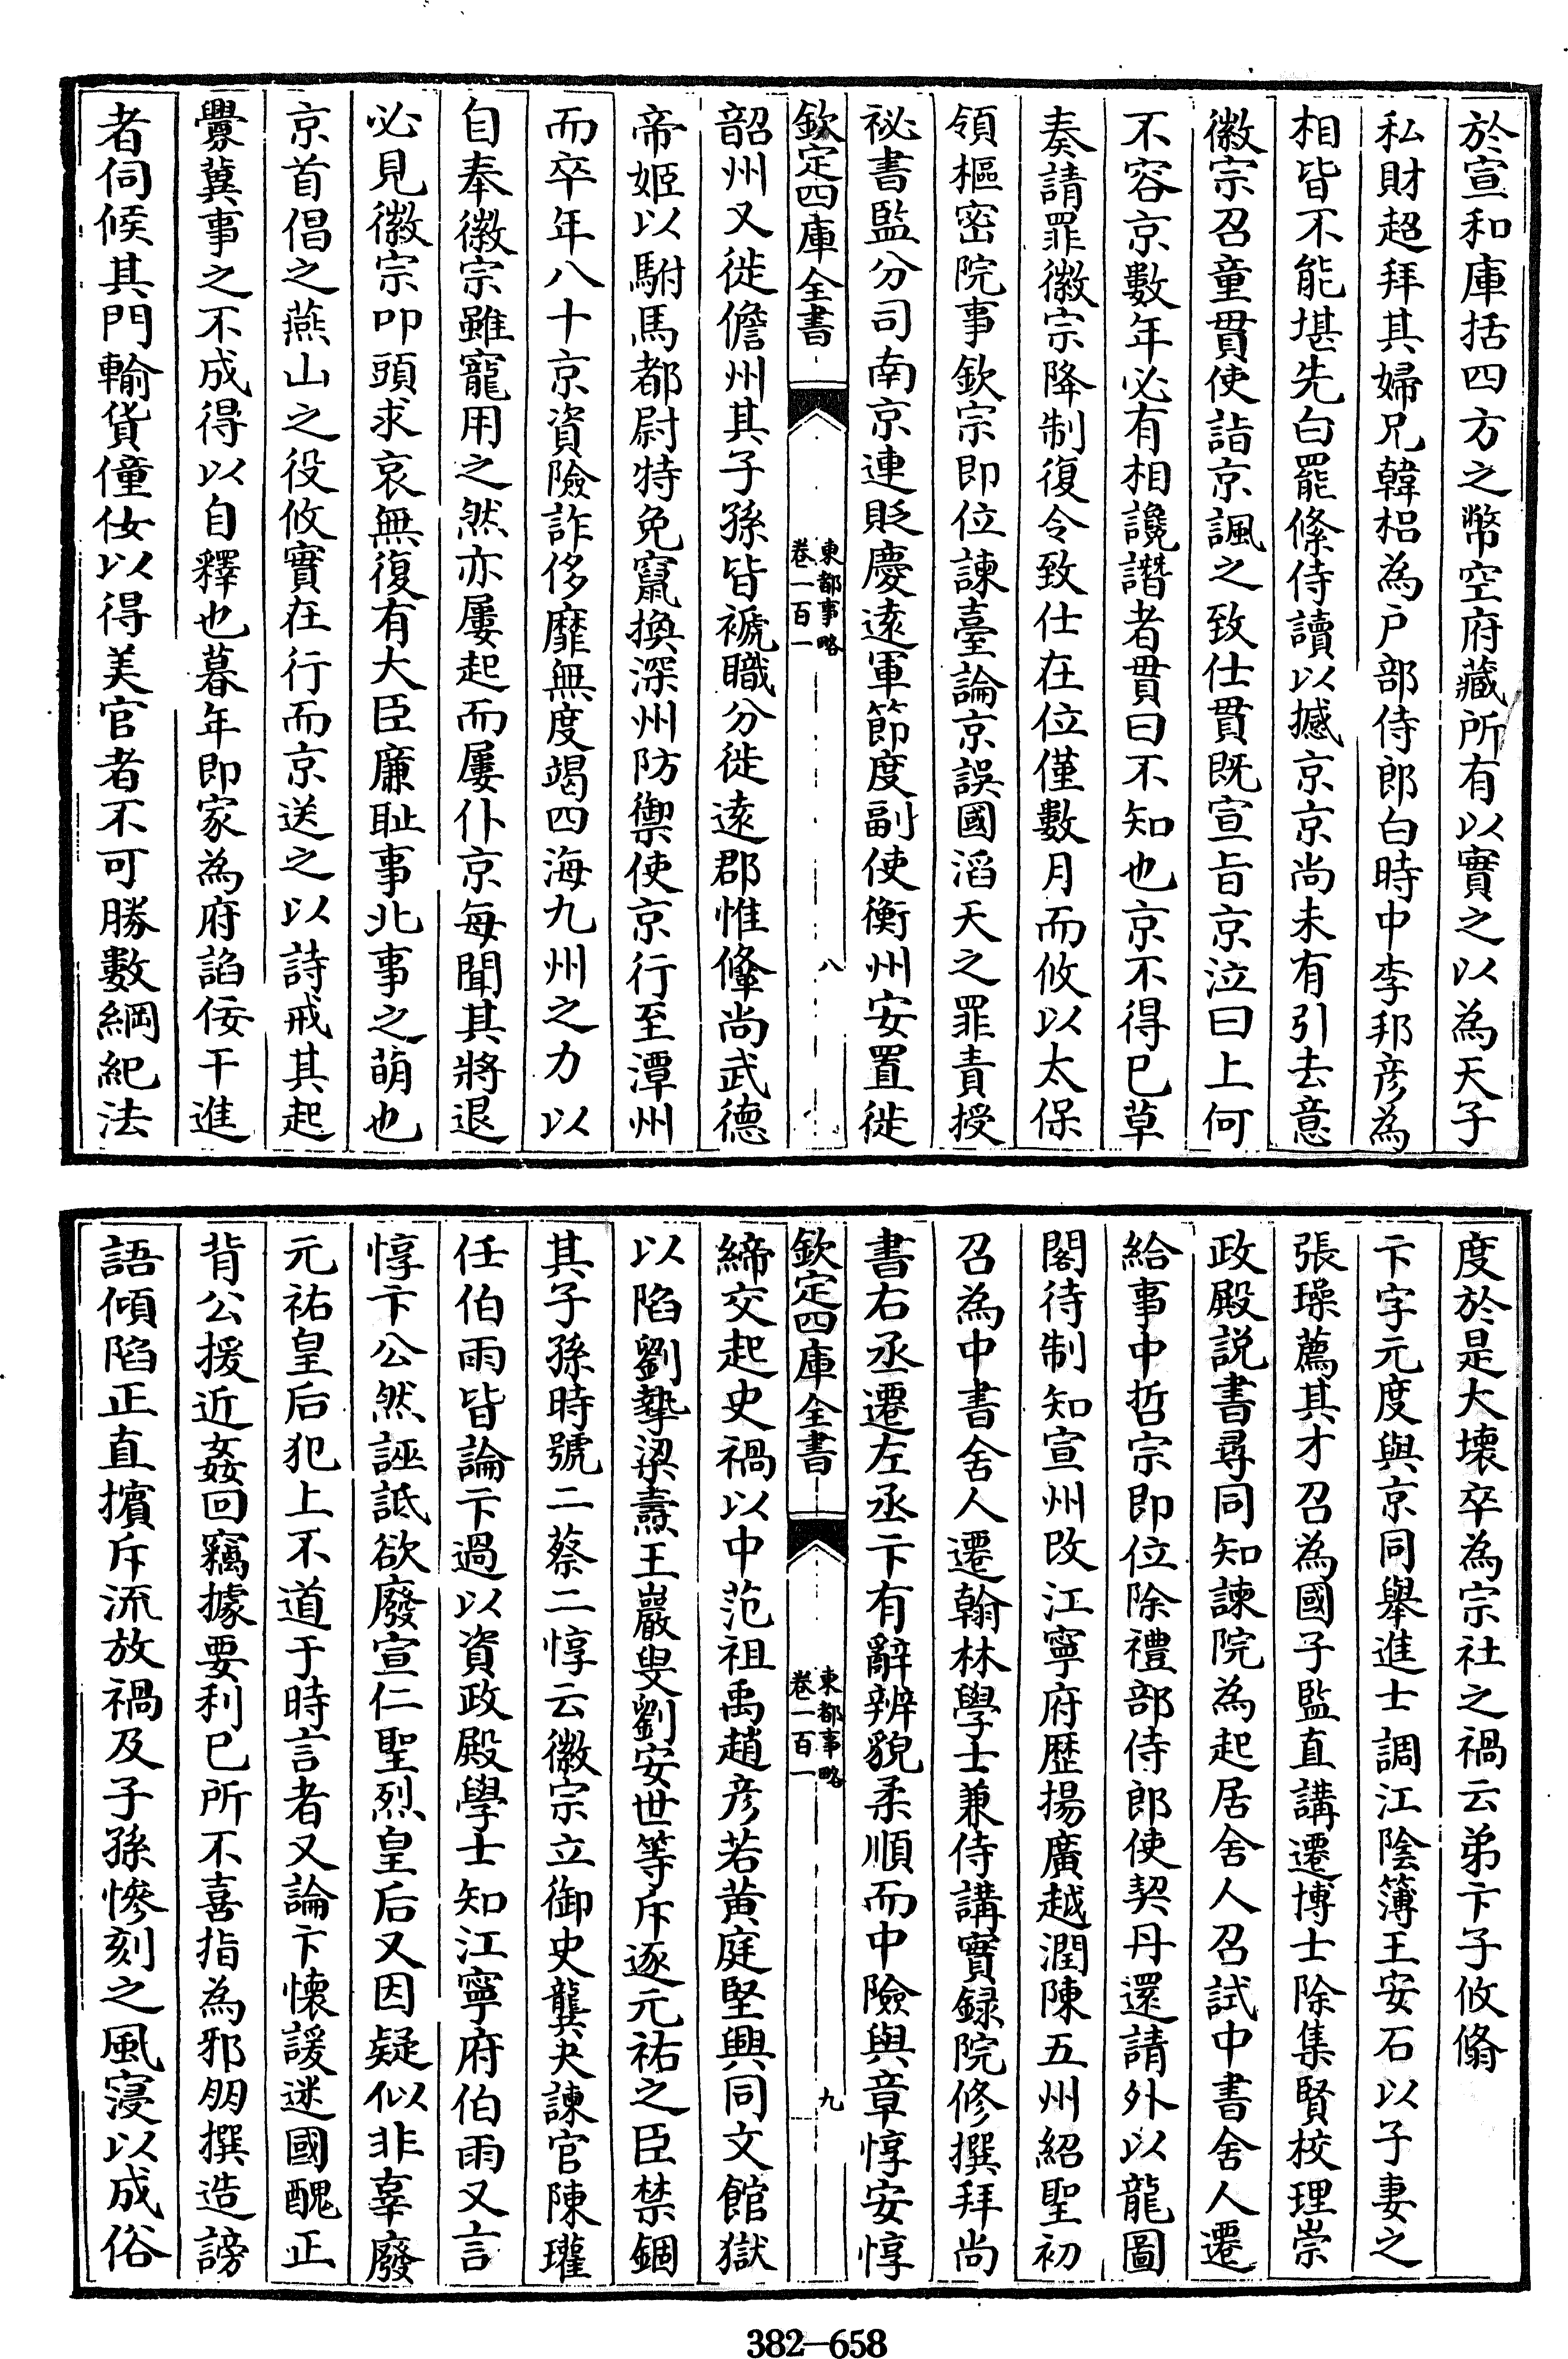 於宣和庫括四方之幣空府藏所有以實之以為天子
私財超拜其婦兄韓梠為户部侍郎白時中李邦彦為
相皆不能堪先白罷絛侍讀以撼京京尚未有引去意
徽宗召童貫使詣京諷之致仕貫既宣㫖京泣曰上何
不容京數年必有相讒譖者貫曰不知也京不得已草
奏請罪徽宗降制復令致仕在位僅數月而攸以太保
領樞密院事欽宗即位諫臺論京誤國滔天之罪責授
祕書監分司南京連貶慶逺軍節度副使衡州安置徙
欽定四庫全書
東都事略
卷一百一
八
韶州又徙儋州其子孫皆褫職分徙逺郡惟鞗尚武德
帝姬以駙馬都尉特免竄換深州防禦使京行至潭州
而卒年八十京資險詐侈靡無度竭四海九州之力以
自奉徽宗雖寵用之然亦屢起而屢仆京每聞其將退
必見徽宗叩頭求哀無復有大臣廉耻事北事之萌也
京首倡之燕山之役攸實在行而京送之以詩戒其起
釁冀事之不成得以自釋也暮年即家為府諂佞干進
者伺候其門輸貨僮伇以得美官者不可勝數綱紀法
度於是大壊卒為宗社之禍云弟卞子攸翛
卞字元度與京同舉進士調江陰簿王安石以子妻之
張璪薦其才召為國子監直講遷博士除集賢校理崇
政殿説書尋同知諫院為起居舍人召試中書舍人遷
給事中哲宗即位除禮部侍郎使契丹還請外以龍圖
閣待制知宣州改江寧府歴揚廣越潤陳五州紹聖初
召為中書舍人遷翰林學士兼侍講實録院修撰拜尚
書右丞遷左丞卞有辭辨貌柔順而中險與章惇安惇
欽定四庫全書
東都事略
卷一百一
九
締交起史禍以中范祖禹趙彦若黄庭堅興同文館獄
以陷劉摯梁燾王巖叟劉安世等斥逐元祐之臣禁錮
其子孫時號二蔡二惇云徽宗立御史龔夬諫官陳瓘
任伯雨皆論卞過以資政殿學士知江寧府伯雨又言
惇卞公然誣詆欲廢宣仁聖烈皇后又因疑似非辜廢
元祐皇后犯上不道于時言者又論卞懐諼迷國醜正
背公援近姦回竊據要利已所不喜指為邪朋撰造謗
語傾陷正直擯斥流放禍及子孫慘刻之風寖以成俗
382—658